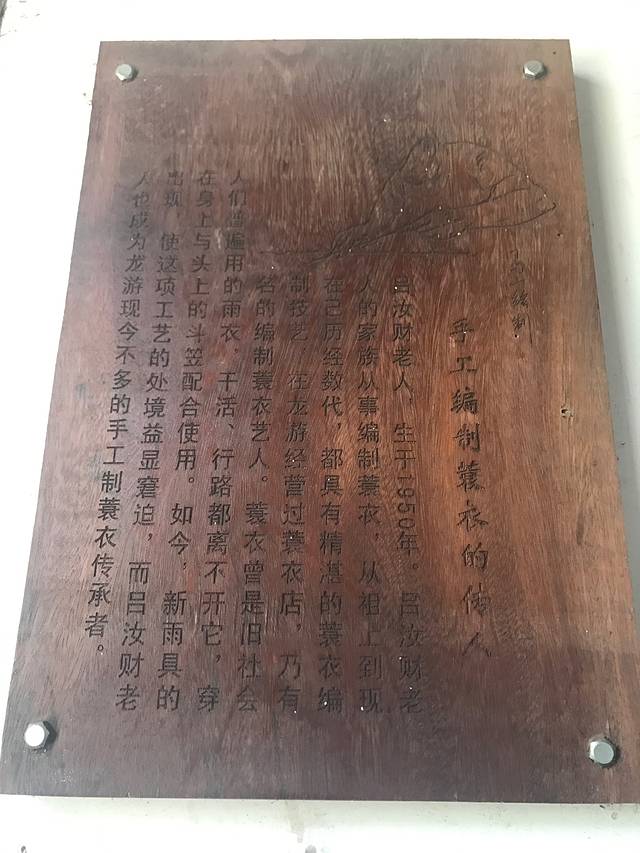 手工编制蓑衣的传人
吕汝财老人，生于1950年。吕汝财老
人的家族从事编制蓑衣，从祖上到现
在己历经数代，都具有精湛的蓑衣编
制技艺，在龙游经营过蓑衣店，乃有
名的编制蓑衣艺人。蓑衣曾是旧社会
人们普遍用的雨衣，干活、行路都离不开它，穿
在身上与头上的斗笠配合使用。如今，新雨具的
出现，使这项工艺的处境益显窘迫，而吕汝财老
人也成为龙游现今不多的手工制蓑衣传承者。